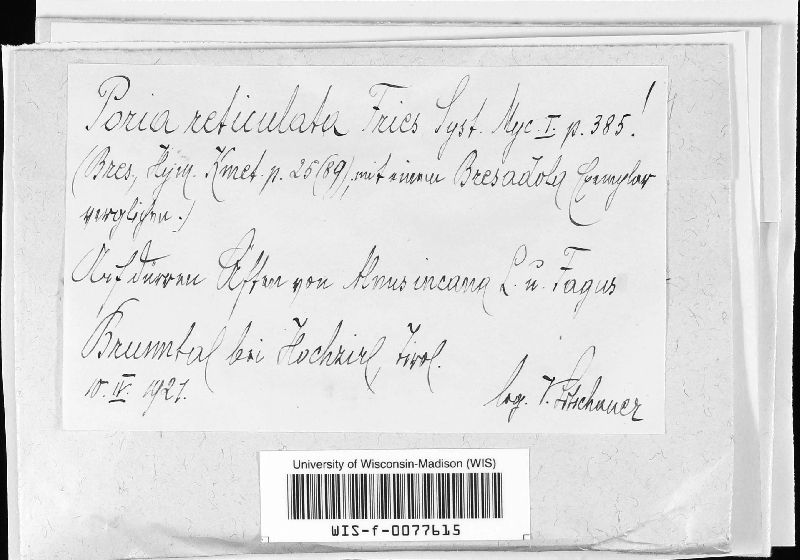 Poria reticulata Fries Syst. Myc. I. p. 385!
(Bres., Hym. Kmet. p. 25 (89), mit einem Bresadola Exemplar
verglichen.)
Auf dürren Ästen von Alnus incana L. u. Fagus
Brunntal bei Hochzirl, Tirol.
10. IV. 1921.
leg. V. Litschauer
University of Wisconsin-Madison (WIS)
WIS-f-0077615